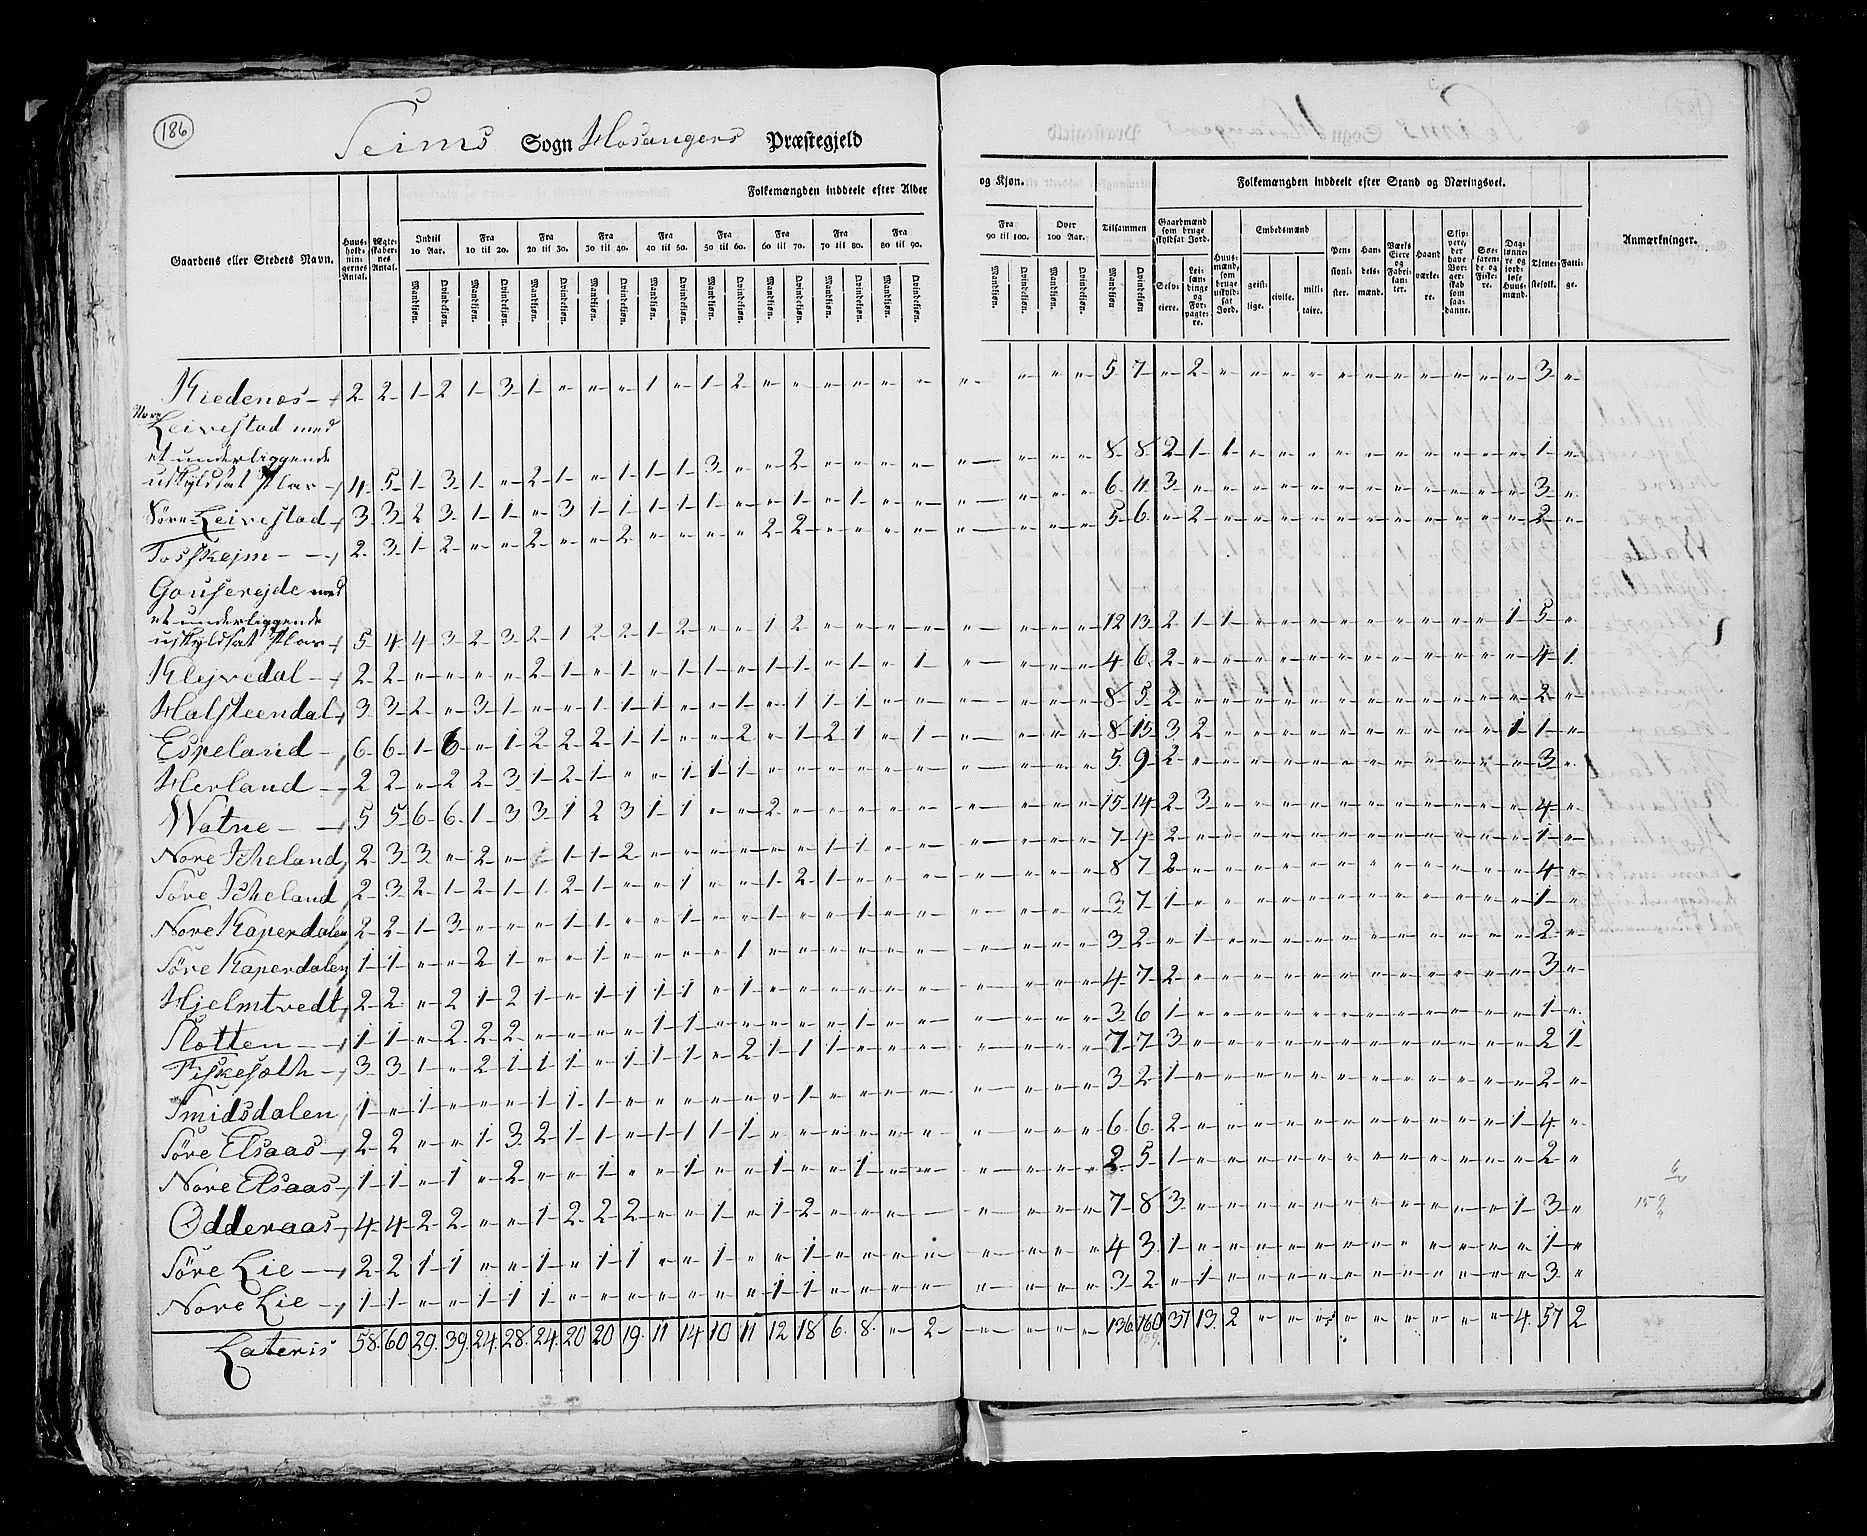 186
Seims Sogn Hosangers Præstegjeld
Gaardens eller Stedets Navn.
Huusholdningernes Antal.
Ægteskabernes Antal.
Folkemængden inddeelt efter Alder og Kjøn.
Indtil 10 Aar.
Fra 10 til 20.
Fra 20 til 30.
Fra 30 til 40.
Fra 40 til 50.
Fra 50 til 60.
Fra 60 til 70.
Fra 70 til 80.
Fra 80 til 90.
Fra 90 til 100.
Over 100 Aar.
Tilsammen
Mandkjøn. Qvindekjøn.
Folkemængden inddeelt efter Stand og Næringsvei.
Gaardmænd som bruge skyldsat Jord.
Selveiere.
Leilændinge og Forpagtere.
Huusmænd, som bruge uskyldsat Jord.
Embedsmænd
geistlige.
civile.
militaire.
Pensionister.
Handelsmænd.
Værks Eiere og Fabrikanter.
Haandværkere.
Skippere, der have Borgerskab som saadanne.
Søefarende og Fiskere.
Daglønnere og jordløse Huusmænd.
Tjenestefolk.
Fattige.
Anmærkninger.
Kiedenes 2 2 1 2 1 3 1 " " " 1 " 1 2 " " " " " " " " " " 5 7 " 2 " " " " " " " " " " " 3 "
Nore Leivestad med
et underliggende
uskyldsat Plar 4 5 1 3 1 " 2 1 " 1 1 1 3 " " 2 " " " " " " " " 8 8 2 1 1 " " " " " " " " " " 1 "
Søre Leivestad 3 3 2 3 1 1 " 3 1 1 1 1 1 " " 1 " 1 " " " " " " 6 11 3 " " " " " " " " " " " " 3 "
Tosskejm 2 3 1 2 " " 2 " " 2 " " " " 2 2 " " " " " " " " 5 6 " 2 " " " " " " " " " " " 2 "
Gouserejde med
et underliggende
uskyldsat Plar 5 4 4 3 2 3 2 1 2 2 1 2 " " 1 2 " " " " " " " " 12 13 2 1 1 " " " " " " " " " 1 5 "
Klejvedal 2 2 " " " " 2 1 " 1 " 1 1 " 1 1 " 1 " 1 " " " " 4 6 2 " " " " " " " " " " " " 4 1
Halsteendal 3 3 2 " 3 1 " " 1 1 1 1 " 1 " 1 1 1 " " " " " " 8 5 2 " " " " " " " " " " " " 2 "
Espeland 6 6 1 6 " 1 2 2 2 1 1 " " 2 " 1 2 1 " 1 " " " " 8 15 3 2 " " " " " " " " " " 1 1 "
Herland 2 2 " 2 2 3 1 2 1 " " 1 1 1 " " " " " " " " " " 5 9 2 " " " " " " " " " " " " 3 "
Watne 5 5 6 6 1 3 3 1 2 3 1 1 " " 2 " " " " " " " " " 15 14 2 3 " " " " " " " " " " " 4 "
Nore Icheland 2 3 3 " 2 " " 1 1 2 " " " " " " 1 1 " " " " " " 7 4 2 " " " " " " " " " " " " 1 "
Søre Icheland 2 3 2 1 2 1 1 2 1 " " 1 " " 1 2 1 " " " " " " " 8 7 2 " " " " " " " " " " " " 4 "
Nore Kaperdalen 2 2 1 3 " " " 1 1 " " 1 " 1 " " " 1 " " " " " " 3 7 1 " " " " " " " " " " " " 1 "
Søre Kaperdalen 1 1 " " 2 1 " " 1 " " " " 1 " " " " " " " " " " 3 2 " 1 " " " " " " " " " " " 2 "
Hjelmtvedt 2 2 " 2 1 2 1 " 1 1 1 1 " 1 " " " " " " " " " " 4 7 2 " " " " " " " " " " " " 3 "
Slotten 1 1 " 2 2 2 " " " " 1 1 " " " " " 1 " " " " " " 3 6 1 " " " " " " " " " " " " 1 "
Fiskesæth 3 3 1 " 2 1 1 1 " 1 1 1 " 2 1 1 1 " " " " " " " 7 7 3 " " " " " " " " " " " " 2 1
Smidsdalen 1 " 1 " " " 1 1 1 " " " " " " 1 " " " " " " " " 3 2 1 " " " " " " " " " " " " 2 "
Søre Elsaas 2 2 " " 1 3 2 1 1 " 1 1 1 1 " " " " " " " " " " 6 6 2 " " " " " " " " " " " 1 4 "
Nore Elsaas 1 1 " 1 " 2 " " 1 " " 1 " " 1 " " 1 " " " " " " 2 5 1 " " " " " " " " " " " " 2 "
Odderaas 4 4 2 2 " " 1 2 2 2 " " 1 " 1 2 " " " " " " " " 7 8 3 " " " " " " " " " " " 1 3 "
Søre Lie 2 2 1 1 " " 1 " 1 1 " " 1 " " 1 " " " " " " " " 4 3 1 " " " " " " " " " " " " 1 "
Nore Lie 1 1 " " 1 1 1 " " " " " " " 1 1 " " " " " " " " 3 2 " 1 " " " " " " " " " " " 3 "
Lateris 58 60 29 39 24 28 24 20 20 19 11 14 10 11 12 18 6 8 " 2 " " " " 136 160 37 13 2 " " " " " " " " " 4 57 2
159